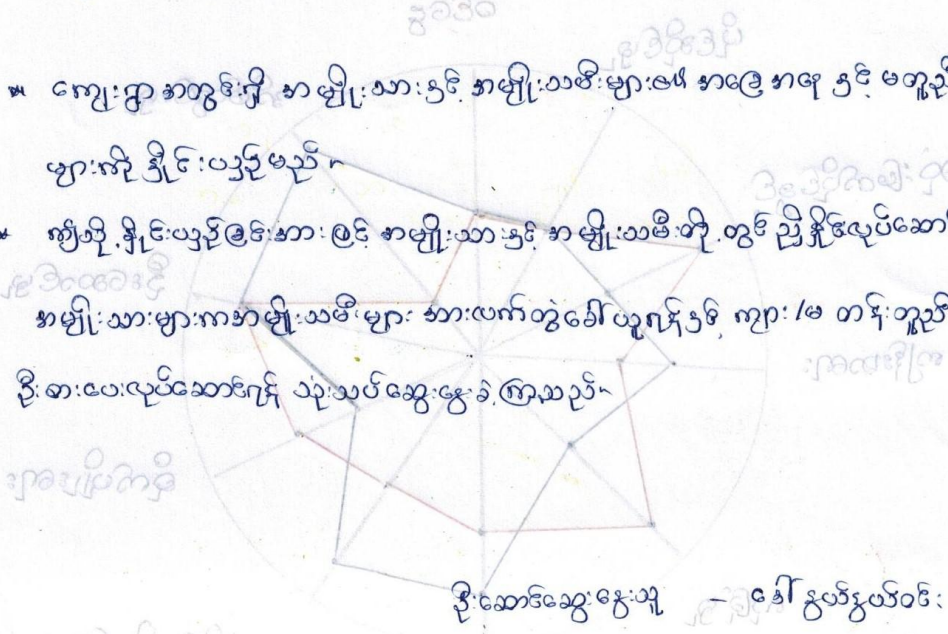 * ကျေးရွာအတွင်းရှိ အမျိုးသားနှင့် အမျိုးသမီးများ၏ အခြေအနေ နှင့် မတူညီ
များကို နှိုင်းယှဉ်မည်။
* ဤသို့ နှိုင်းယှဉ်ခြင်းအားဖြင့် အမျိုးသားနှင့် အမျိုးသမီးတို့ တွင် ညှိနှိုင်းလုပ်ဆော
အမျိုးသားများကအမျိုးသမီးများ အားလက်တွဲခေါ်ယူရန်နှင့် ကျား/မ တန်းတူညီ
ဦးစားပေးလုပ်ဆောင်ရန် သုံးသပ်ဆွေးနွေးခဲ့ကြသည်။
ဦးဆောင်ဆွေးနွေးသူ - ဒေါ်နွယ်နွယ်ဝင်း